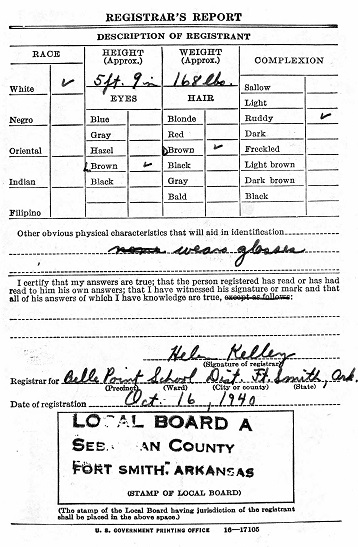 REGISTRAR'S REPORT
DESCRIPTION OF REGISTRANT
RACE
HEIGHT (Approx.)
WEIGHT (Approx.)
COMPLEXION
White ✓
5 ft. 9 in
168 lbs.
EYES
HAIR
Sallow
Light
Negro
Blue
Blonde
Ruddy ✓
Gray
Red
Dark
Oriental
Hazel
Brown ✓
Freckled
Brown ✓
Black
Light brown
Indian
Black
Gray
Dark brown
Bald
Black
Filipino
Other obvious physical characteristics that will aid in identification
none wears glasses
I certify that my answers are true; that the person registered has read or has had
read to him his own answers; that I have witnessed his signature or mark and that
all of his answers of which I have knowledge are true, except as follows:
Helen Kelley
(Signature of registrar)
Registrar for Belle Point School Dist. Ft. Smith, Ark.
(Precinct) (Ward) (City or county) (State)
Date of registration Oct. 16, 1940
LOCAL BOARD A
SEB AN COUNTY
FORT SMITH, ARKANSAS
(STAMP OF LOCAL BOARD)
(The stamp of the Local Board having jurisdiction of the registrant
shall be placed in the above space.)
U. S. GOVERNMENT PRINTING OFFICE 16—17105